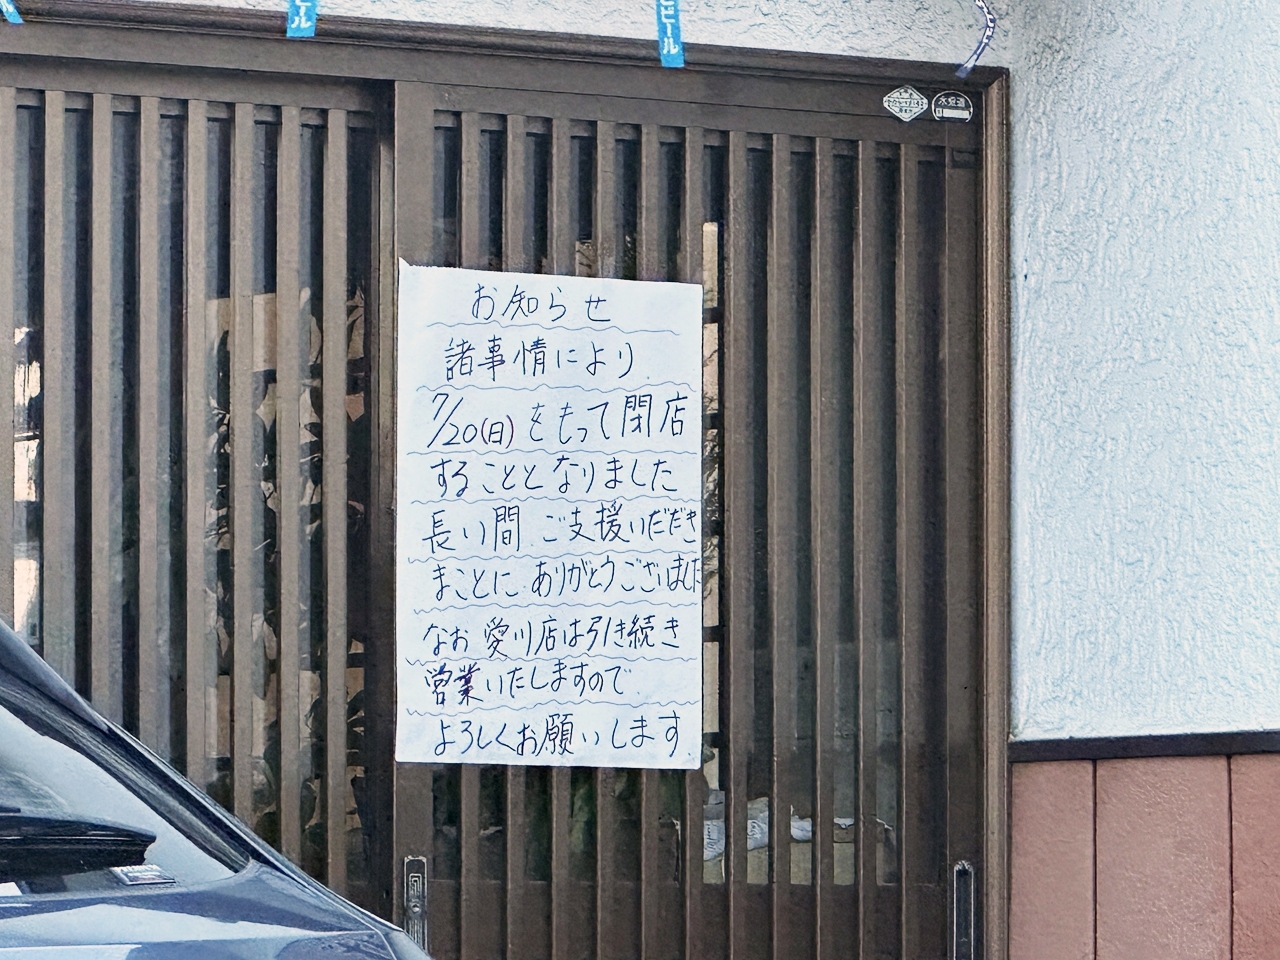 ビール
ビール
水道
お知らせ
諸事情により
7/20(日)をもって閉店
することとなりました
長い間 ご支援いだだき
まことに ありがとうございました
なお 愛川店は引き続き
営業いたしますので
よろしくお願いします